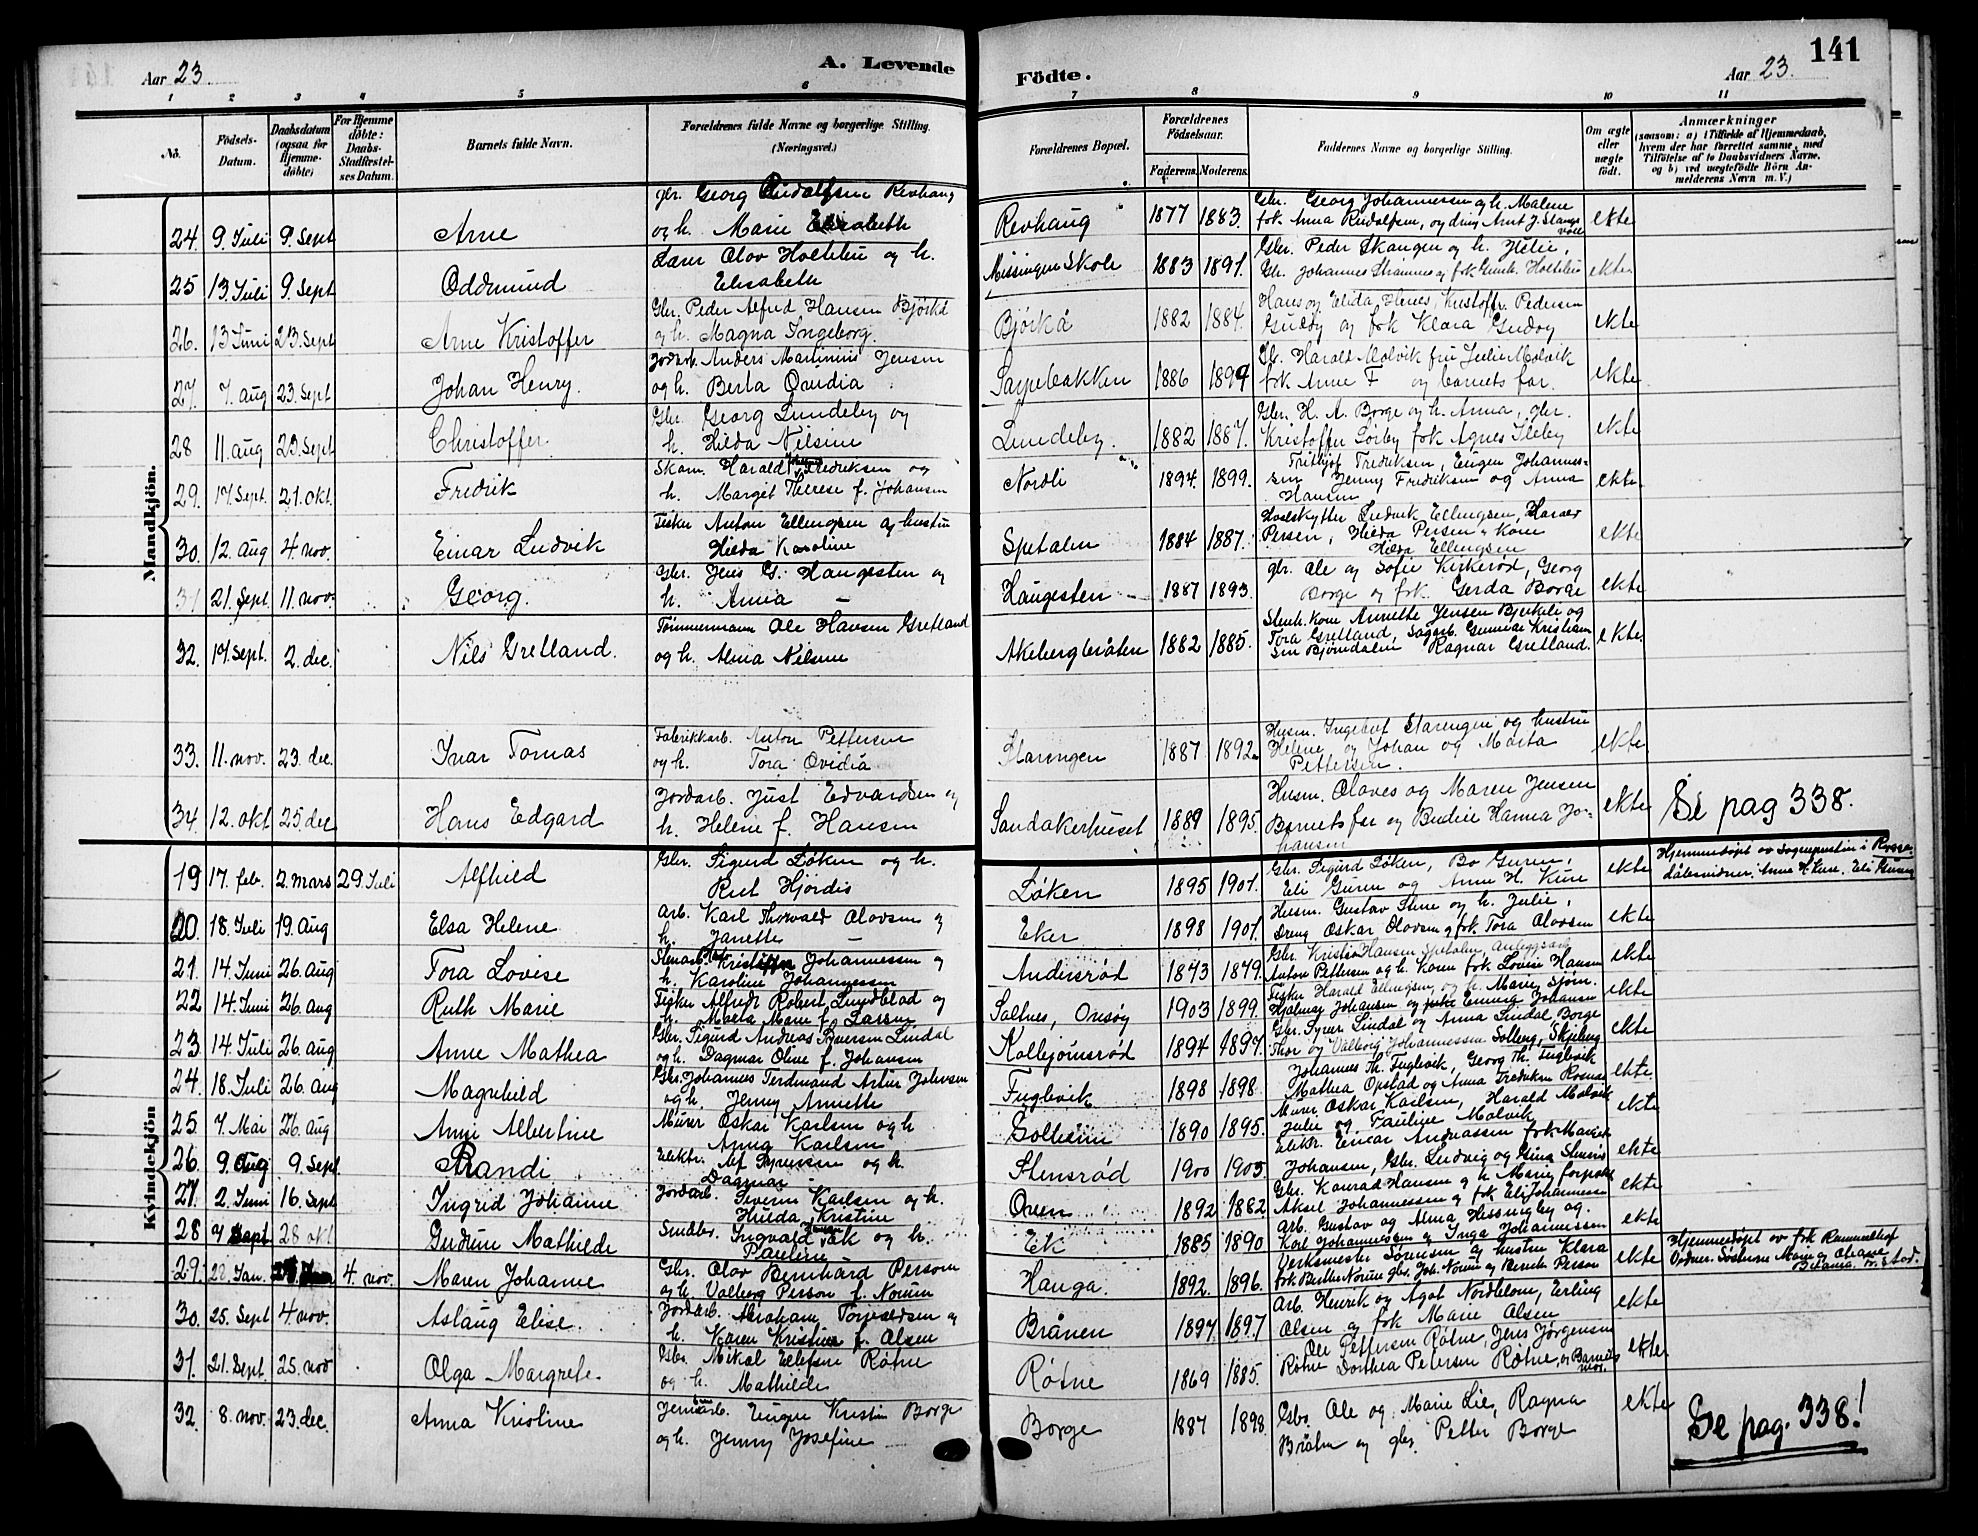 141
Aar 23
A. Levende
Födte.
Aar 23.
1 2 3 4 5 6 7 8 9 10 11
No.
Födsels-Datum.
Daabsdatum (ogsaa for Hjemmedöbte)
For Hjemme döbte: Daabs-Stadfæstelses Datum.
Barnets fulde Navn.
Forældrenes fulde Navne og borgerlige Stilling. (Næringsvei.)
Forældrenes Bopæl.
Forældrenes Födselsaar.
Faderens. Moderens.
Faddernes Navne og borgerlige Stilling.
Om ægte eller uægte födt.
Anmærkninger
(saasom: a) i Tilfælde af Hjemmedaab, hvem der har forrettet samme, med Tilföielse af to Daabsvidners Navne, og b) ved uægtefödte Börn Anmelderens Navn m. V.)
Mandkjön.
24. 9. Juli 9. Sept Arne gbr. Georg Rudolfsen Revhaug og h. Marie Elisabeth Revhaug 1877 1883. Gbr. Georg Johannessen og h. Malene frk. Anna Rudolfsen, og ekte
25 13. Juli 9. Sept Oddmund Lærer Olov Holtelin og h. Elisabeth Missingen Skole 1883 1891. Gbr. Peder Skangen og h. ekte
26. 13 Juni 23. Sept Arne Kristoffer Gbr. Peder Alfred Hansen Bjørkå og h. Magna Ingeborg. Bjørkå 1882 1884. Kristoffr. Pedersen Gudøy og frk Klara Gudøy ekte
27. 7. Aug 23. Sept Johan Henry. Jordarb. Anders Martinius Jensen og h. Berta Ovidia Sarpebakken 1886 1894 Harald Molvik fru Julie Molvik frk Anne F og barnets far. ekte
28 11. Aug 23. Sept Christoffer. Gbr. Georg Lundeby og h. Hilda Nilsine Lundeby. 1882 1887. Gbr. H. A. Borge og h. Anna, gbr. Kristoffer Sørby frk Agnes ekte
29. 17. Sept. 21. okt. Fredrik Harald Fredriksen og h. Margit Therese f. Johansen Nordli 1894. 1899. Fritjof Fredriksen, Eugen Johannessen Jenny Fredriksen og Anna Hansen ekte
30. 12. Aug 4 nov. Einar Ludvik Fisker Anton Ellingsen og hustru Hilda Karoline Spetalen 1884 1887. Ludvik Ellingsen, Persen, Hilda Persen Hilda Ellingsen ekte
31 21. Sept 11. nov. Georg. Gbr. Jens G. Haugesten og h. Anna Haugesten 1887 1893. gbr. Ole og Sofie Kirkerød, Georg Borge og frk. Gerda Borge ekte
32. 17. Sept. 2. dec. Nils Gretland. Tømmermann Ole Hansen Gretland og h. Alma Nilsen Akebergbråten 1882 1885. Annette Jensen Bjerkeli og Tora Gretland, Sagarb. Gunnar Kristiansen Bjørndalen Ragnar Gretland. ekte
33. 11. nov. 23. dec. Ivar Tomas Fabrikkarb. Anton Pettersen og h. Tora Ovidia Starengen 1887 1892. Husm. Starengen og hustru Helene og Johan og Marta Pettersen. ekte
34. 12. okt 25. dec Hans Edgard Jordarb. Just Edvardsen og h. Helene f. Hansen Sandakerhuset 1889 1895. Husm. Olaves og Maren Jensen Barnets far og Budeie Hanna Johansen ekte Se pag 338.
Kvindekjön
19 17. feb. 2. mars 29. Juli Alfhild Gbr. Sigurd Løken og h. Rut Hjørdis Løken 1895 1901. Gbr. Sigurd Løken, Bo Guren, Eli Guren og Anne H. Kure ekte Hjemmedøpt av Sogneprestin i Rygge. dåpsvidner. Anne H. Kure, Eli Guren
20. 18. Juli 19. Aug Elsa Helene Arb. Karl Thorvald Olavsen og h. Janette Eker 1898 1901. Husm. Gustav Stene og h. Julie, Dreng Oskar Olavsen og frk Tora Olavsen ekte
21. 14. Juni 26. Aug Tora Lovise Johannessen og h. Karoline Johannessen Andersrød 1873 1879. Gbr. Kristian Hansen Spetalen Anton Pettersen og h. Karen frk Lovise Hansen ekte
22 14. Juni 26. Aug Ruth Marie Fisker Alfred Robert Lundblad og h. Marta Marie f. Larsen Saltnes, Onsøy 1903 1899. Fisker Harald Ellingsen og h. Marie, sjøm. Hjalmar Johansen og Johansen ekte
23 14. Juli 26. Aug Anne Mathea Gbr. Sigurd Andreas Syversen Lindal og h. Dagmar Oline f. Johansen Kollebjørnsrød 1894 1897. Gbr. Syver Lindal og Anna Lindal Borge Thor og Valborg Johannessen Solberg, Skjeberg ekte
24. 18. Juli 26. Aug Magnhild Gbr. Johannes Ferdinand Artur Johnsen og h. Jenny Annette Fuglevik 1898 1898. Johannes Th. Fuglevik, Georg Th. Fuglevik Mathea Opstad og Anna Fredriksen ekte.
25. 7. Mai 26. Aug Anne Albertine Murer Oskar Karlsen og h Anna Karlsen Solheim 1890 1895. Murer Oskar Karlsen, Harald Molvik Julie og Pauline Molvik ekte
26. 9. Aug 9. Sept Randi Elektr. Alf Syversen og h. Dagmar Stensrød 1900 1903 Elektr. Einar Andreassen frk Margit Johansen, Gbr. Ludvig og Gina ekte
27. 2. Juni 16. Sept Ingrid Johanne Jordarb. Severin Karlsen og h. Hulda Kristine Oven 1892 1882 Gbr. Konrad Hansen og h. Marie, Aksel Johannessen og frk Eli Johannessen ekte
28 7 Sept 28 okt Gudrun Mathilde Ingvald Eak og h. Pauline Ek 1885 1890 Arb. Gustav og Alma Hissingby og Karl Johannessen og Inga Johannessen ekte
29. 22. Jan. 4. nov. Maren Johanne Gbr. Olav Bernhard Person og h. Valborg Person f. Norum Hauga. 1892. 1896. Verksmester Sørensen og hustru Klara frk Berthe Norum gbr. Joh. Norum og Person ekte Hjemmedøpt av frk
30. 25. Sept 4. nov. Aslaug Elise. Jordarb. Abraham Torjesen og h. Karen Kristine f. Olsen Bråten 1897 1897 Arb. Henrik og Agot Nordblom, Erling Olsen og frk Marie Olsen ekte
31. 21. Sept 25. nov Olga Margrete. Gbr. Mikal Ellefsen Røtne og h. Mathilde Røtne 1869 1885. Ole Pettersen Røtne, Jens Jørgensen Røtne Dorthea Petersen Røtne, og Barnets mor. ekte
32. 8. nov. 23. dec. Anna Kristine Eugen Kristian Borge og h. Jenny Josefine Borge 1887 1898. Gbr. Ole og Marie Lie, Ragna Bråten og gbr. Petter Borge ekte Se pag. 338!